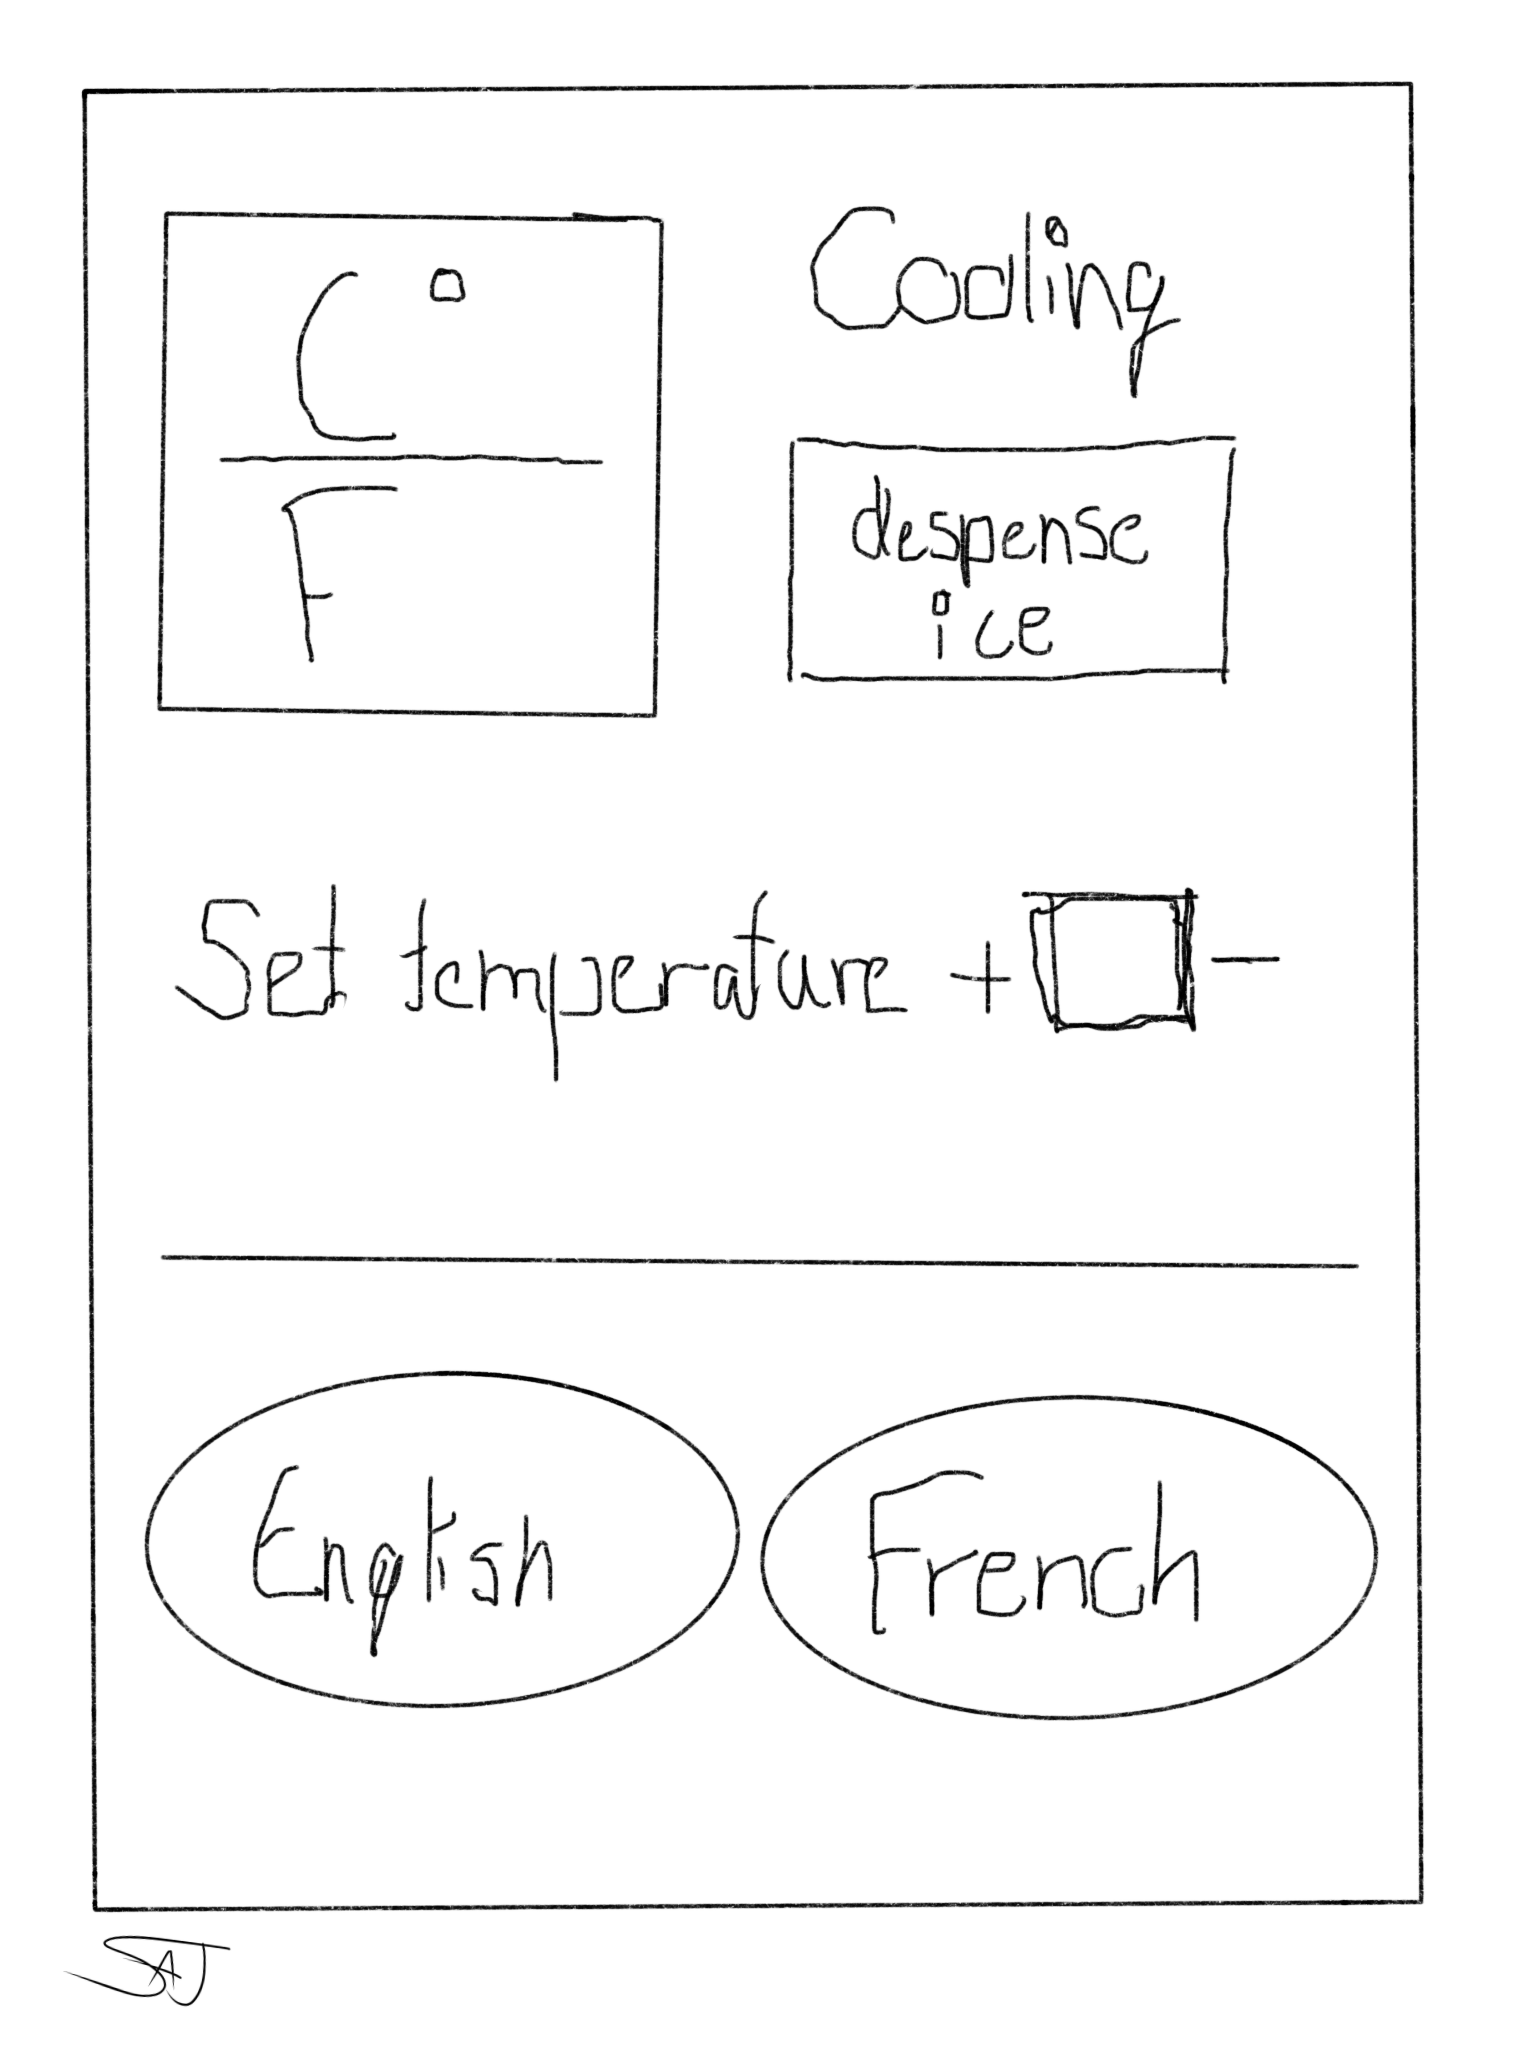 C°
F
Cooling
despense
ice
Set temperature + -
English
French
SAJ